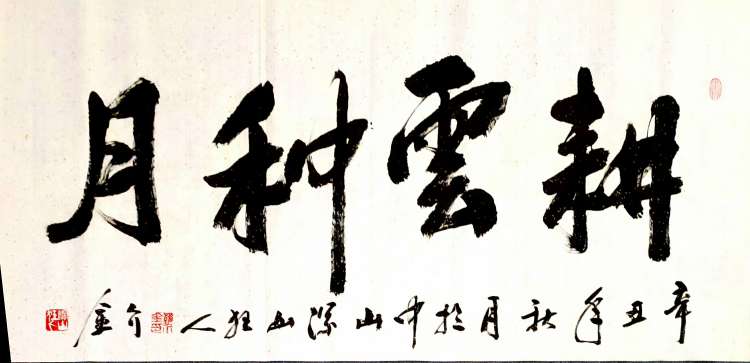 耕雲种月
辛丑年秋月於中山深山狂人介金